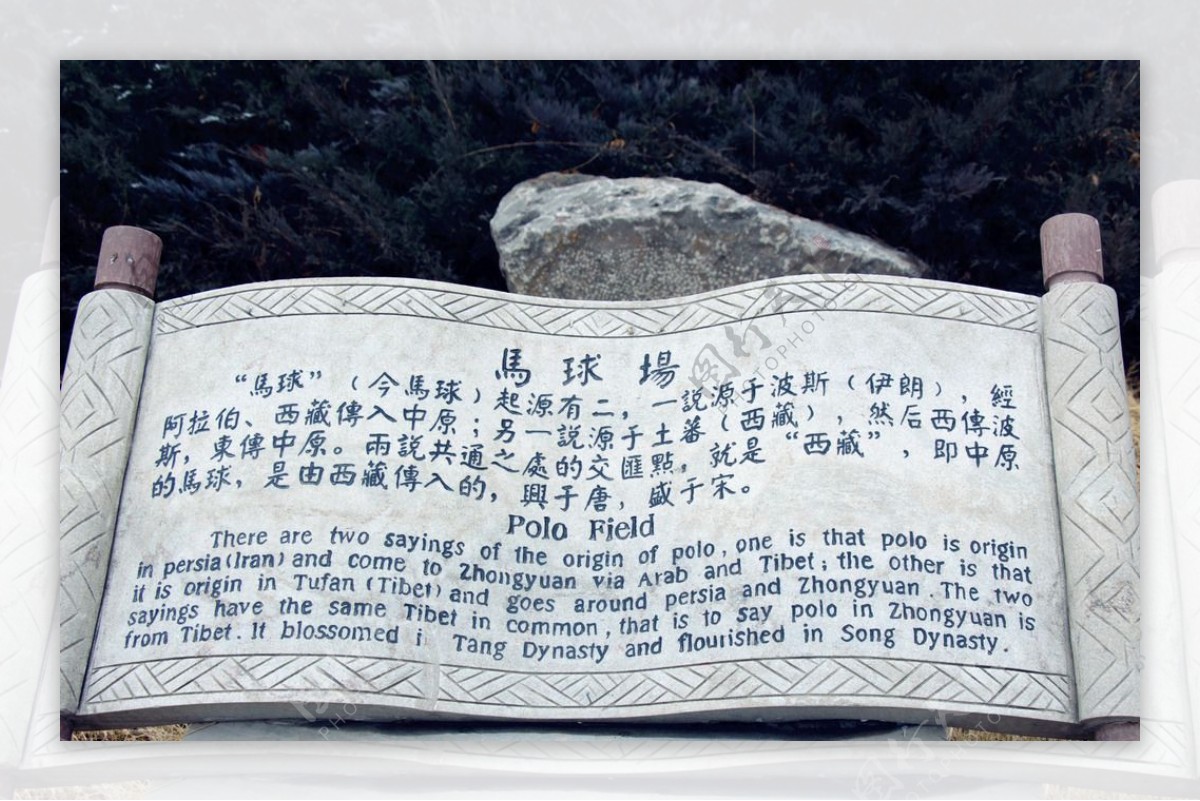 馬球場
“馬球”（今馬球）起源有二，一説源于波斯（伊朗），經
阿拉伯、西藏傳入中原；另一説源于土蕃（西藏），然后西傳波
斯，東傳中原。兩説共通之處的交匯點，就是“西藏”，即中原
的馬球，是由西藏傳入的，興于唐，盛于宋。
Polo Field
There are two sayings of the origin of polo, one is that polo is origin
in persia(Iran) and come to Zhongyuan via Arab and Tibet; the other is that
it is origin in Tufan (Tibet) and goes around persia and Zhongyuan. The two
sayings have the same Tibet in common, that is to say polo in Zhongyuan is
from Tibet. It blossomed i Tang Dynasty and flourished in Song Dynasty.